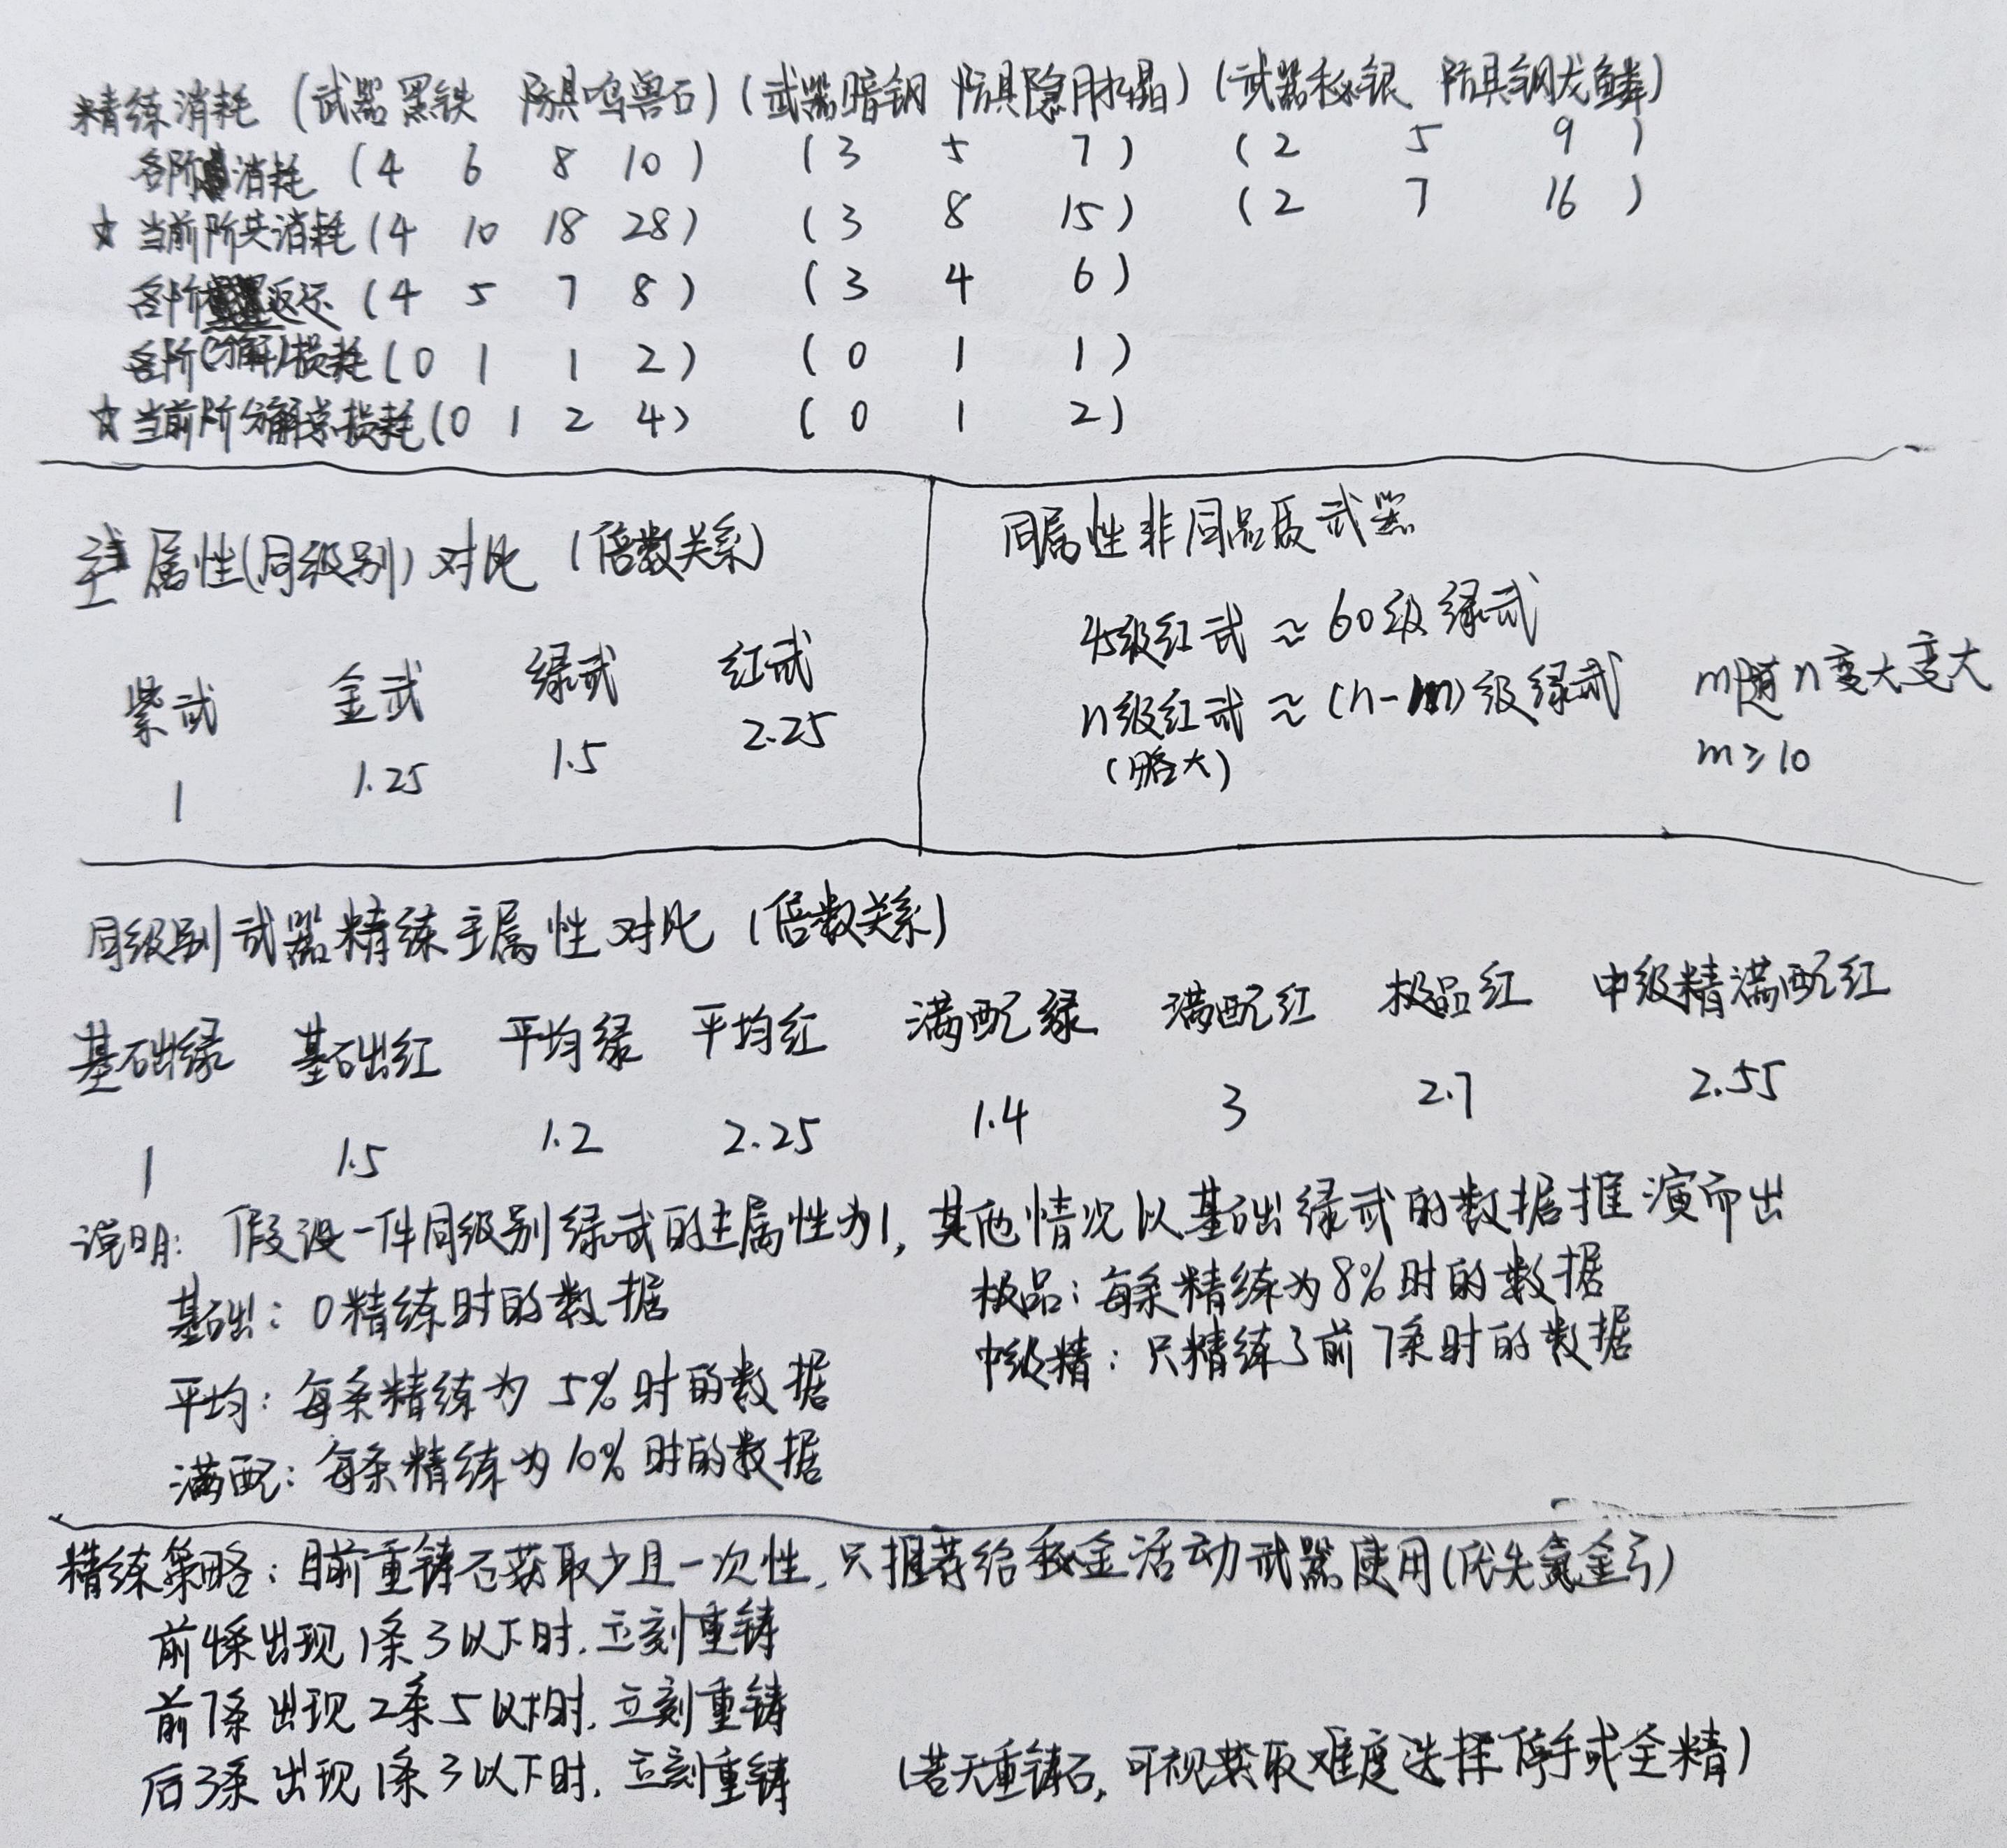 精练消耗（武器黑铁 防具鸣兽石）（武器暗钢 防具隐月水晶）（武器秘银 防具钢龙鳞）
各阶消耗（4 6 8 10）（3 5 7）（2 5 9）
☆当前阶共消耗（4 10 18 28）（3 8 15）（2 7 16）
各阶返还（4 5 7 8）（3 4 6）
各阶（分解）损耗（0 1 1 2）（0 1 1）
☆当前阶分解总损耗（0 1 2 4）（0 1 2）
主属性（同级别）对比（倍数关系）
紫武 金武 绿武 红武
1 1.25 1.5 2.25
同属性非同品质武器
45级红武≈60级绿武
n级红武≈（n-m）级绿武 m随n变大变大
（略大） m≥10
同级别武器精练主属性对比（倍数关系）
基础绿 基础红 平均绿 平均红 满配绿 满配红 极品红 中级精满配红
1 1.5 1.2 2.25 1.4 3 2.7 2.55
说明：假设一件同级别绿武的主属性为1，其他情况以基础绿武的数据推演而出
基础：0精练时的数据 极品：每条精练为8%时的数据
平均：每条精练为5%时的数据 中级精：只精练了前7条时的数据
满配：每条精练为10%时的数据
精练策略：目前重铸石获取少且一次性，只推荐给秘金活动武器使用（优先氪金弓）
前4条出现1条3以下时，立刻重铸
前7条出现2条5以下时，立刻重铸
后3条出现1条3以下时，立刻重铸 （若无重铸石，可视获取难度选择停手或全精）